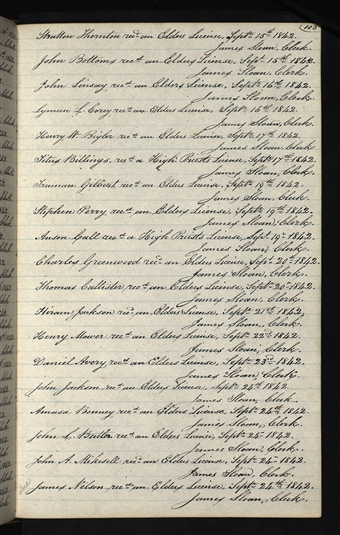 108
Stratton Thornton rec.d an Elders License, Sept. 15th 1842.
James Sloan, Clerk.
John Bottoms rec.d an Elders License, Sept. 15th 1842.
James Sloan, Clerk.
John Linsay rec.d an Elders License, Sept. 16th 1842.
James Sloan, Clerk.
Lyman L. Corey rec.d an Elders License, Sept. 16th 1842.
James Sloan, Clerk.
Henry W. Bigler rec.d an Elders License, Sept. 17th 1842.
James Sloan Clerk
Titus Billings, rec.d a High Priests License, Sept. 17th 1842.
James Sloan, Clerk
Truman Gilbert rec.d an Elders License, Sept. 19th 1842.
James Sloan, Clerk
Stephen Perry rec.d an Elders License, Sept. 19th 1842.
James Sloan, Clerk.
Anson Call rec.d a High Priests License, Sept. 19th 1842.
James Sloan, Clerk.
Charles Greenwood rec.d an Elders License, Sept. 20th 1842.
James Sloan, Clerk.
Thomas Callister rec.d an Elders License, Sept. 20th 1842.
James Sloan, Clerk.
Hiram Jackson rec.d an Elders License, Sept. 21st 1842,
James Sloan, Clerk.
Henry Mower rec.d an Elders License, Sept. 22d 1842.
James Sloan, Clerk.
Daniel Avery rec.d an Elders License, Sept. 23d 1842.
James Sloan, Clerk.
John Jackson rec.d an Elders License, Sept. 24th 1842
James Sloan, Clerk
Amasa Bonney rec.d an Elders License, Sept. 24th 1842.
James Sloan, Clerk.
John L. Butler rec.d an Elders License, Sept. 24th 1842.
James Sloan, Clerk.
John A. Mikesell rec.d an Elders License, Sept. 24th 1842.
James Sloan, Clerk.
James Nelson rec.d an Elders License, Sept. 24th 1842.
James Sloan, Clerk.